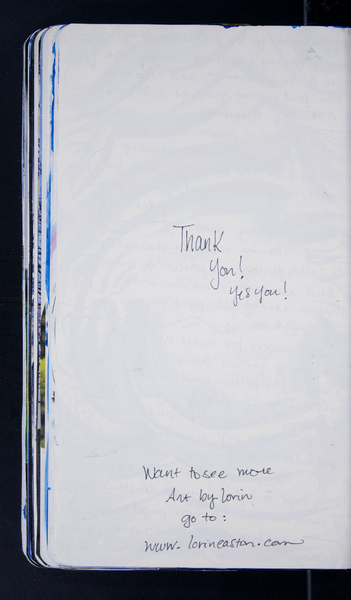 Thank
You!
yes you!
Want to see more
Art by Lorin
go to:
www.lorineaston.com